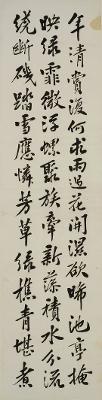 年清賞復何求雨過花開濕欲晞池亭掩
映綠霏微浮螺聚族牽新藻積水分流
繞斷磯踏雪應憐芳草綠樵青堪煮